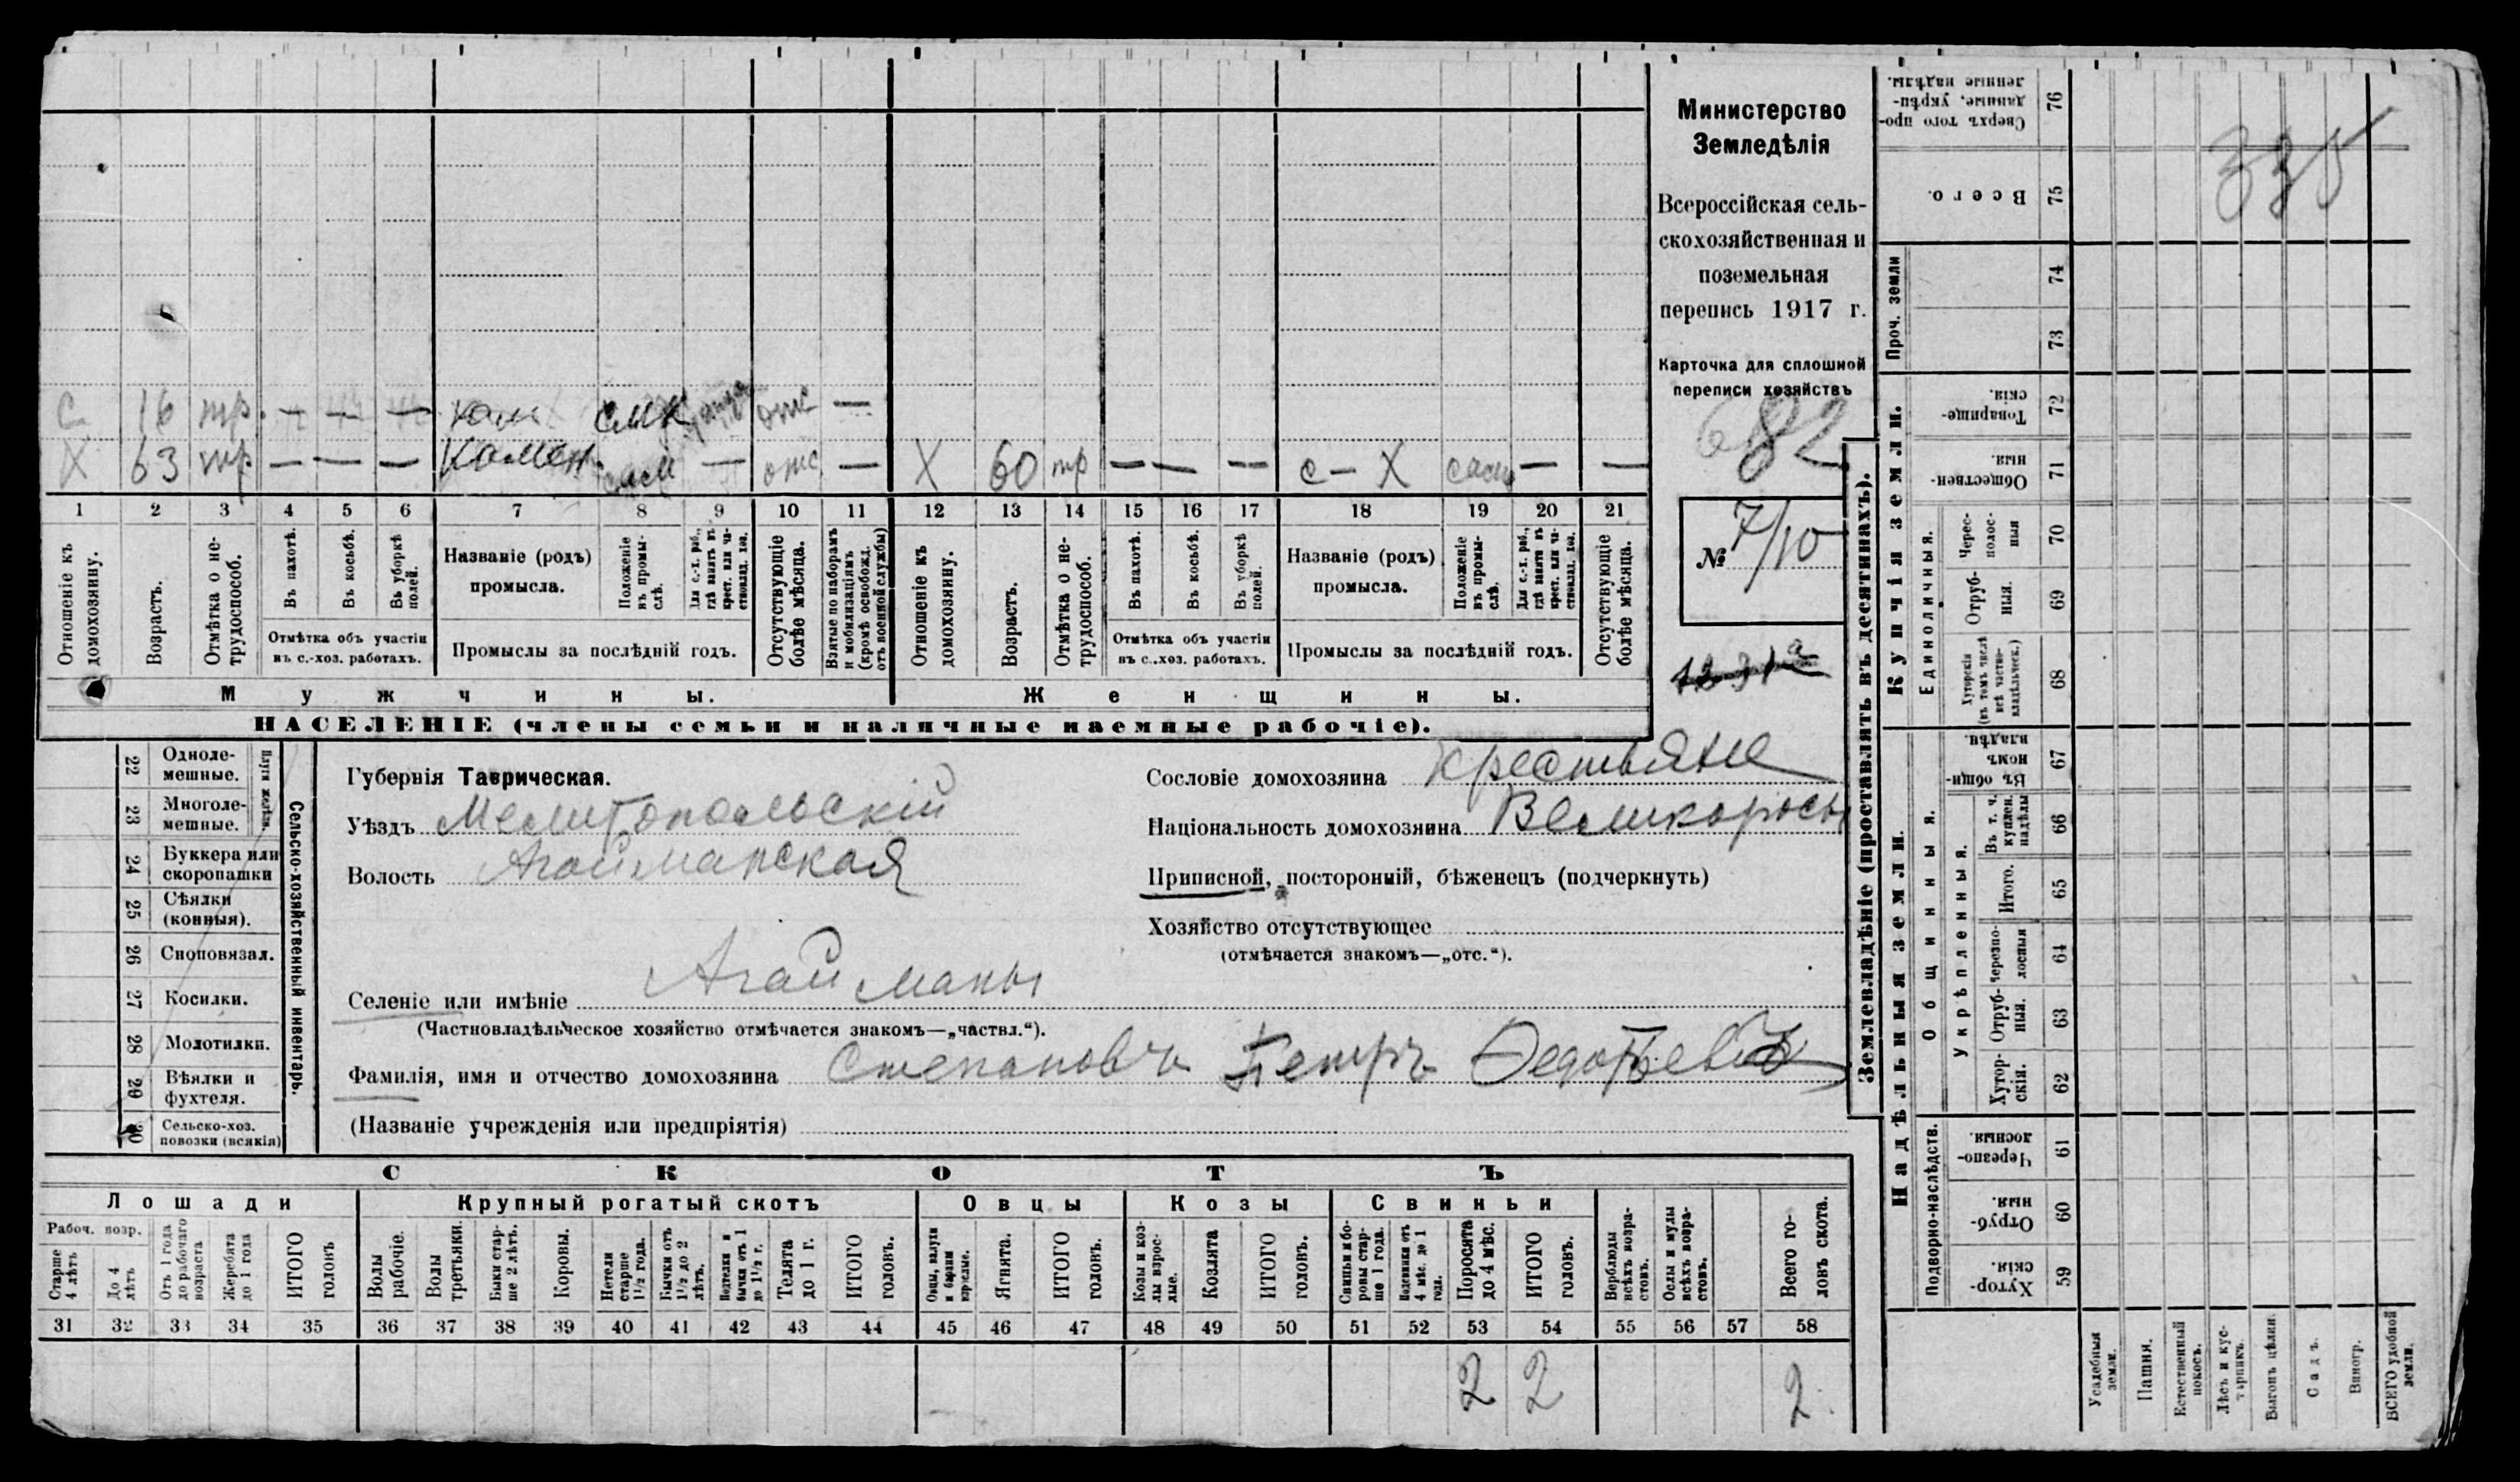 С 16 тр. — — — отс —
Х 63 тр — — — Камен. сам — отс — Х 60 тр — — — с – Х — —
1 2 3 4 5 6 7 8 9 10 11 12 13 14 15 16 17 18 19 20 21
Отношеніе къ домохозяину.
Возрастъ.
Отмѣтка о не-
трудоспособ.
Въ пахотѣ.
Въ косьбѣ.
Въ уборкѣ
полей.
Отмѣтка объ участіи
въ с.-хоз. работахъ.
Названіе (родъ)
промысла.
Положеніе
въ промы-
слѣ.
Для с.-х. раб.,
гдѣ занятъ въ
крест. или ча-
стновлад. хоз.
Промыслы за послѣдній годъ.
Отсутствующіе
болѣе мѣсяца.
Взятые по наборамъ
и мобилизаціямъ
(кромѣ освобожд.
отъ военной службы)
Отношеніе къ
домохозяину.
Возрастъ.
Отмѣтка о не-
трудоспособ.
Въ пахотѣ.
Въ косьбѣ.
Въ уборкѣ
полей.
Отмѣтка объ участіи
въ с.-хоз. работахъ.
Названіе (родъ)
промысла.
Положеніе
въ промы-
слѣ.
Для с.-х. раб.,
гдѣ занята въ
крест. или ча-
стновлад. хоз.
Промыслы за послѣдній годъ.
Отсутствующіе
болѣе мѣсяца.
Мужчины.
Женщины.
НАСЕЛЕНІЕ (члены семьи и наличные наемные рабочіе).
Министерство
Земледѣлія
Всероссійская сель-
скохозяйственная и
поземельная
перепись 1917 г.
Карточка для сплошной
переписи хозяйствъ
682
№ 7/10
22 Одноле-
мешные.
23 Многоле-
мешные.
Плуги желѣзн.
24 Буккера или
скоропашки
25 Сѣялки
(конныя).
26 Сноповязал.
27 Косилки.
28 Молотилки.
29 Вѣялки и
фухтеля.
30 Сельско-хоз.
повозки (всякія)
Сельско-хозяйственный инвентарь.
Губернія Таврическая.
Уѣздъ Мелитопольскій
Волость Агайманская
Селеніе или имѣніе Агайманы
(Частновладѣльческое хозяйство отмѣчается знакомъ—„частвл.“).
Фамилія, имя и отчество домохозяина Степановъ Петръ Федотьевъ
(Названіе учрежденія или предпріятія)
Сословіе домохозяина Крестьяне
Національность домохозяина Великороссы
Приписной, посторонній, бѣженецъ (подчеркнуть)
Хозяйство отсутствующее
(отмѣчается знакомъ—„отс.“).
СКОТЪ
Лошади
Крупный рогатый скотъ
Овцы
Козы
Свиньи
Рабоч. возр.
Старше
4 лѣтъ
До 4
лѣтъ
Отъ 1 года
до рабочаго
возраста
Жеребята
до 1 года
ИТОГО
головъ
Волы
рабочіе.
Волы
третьяки.
Быки стар-
ше 2 лѣтъ.
Коровы.
Нетели
старше
1½ года.
Бычки отъ
1½ до 2
лѣтъ.
Нетелки и
бычки отъ 1
до 1½ г.
Телята
до 1 г.
ИТОГО
головъ.
Овцы, валухи
и бараны
взрослые.
Ягнята.
ИТОГО
головъ.
Козы и коз-
лы взрос-
лые.
Козлята
ИТОГО
головъ.
Свиньи и бо-
ровы стар-
ше 1 года.
Подсвинки отъ
4 мѣс. до 1
года.
Поросята
до 4 мѣс.
ИТОГО
головъ.
Верблюды
всѣхъ возра-
стовъ.
Ослы и мулы
всѣхъ возра-
стовъ.
Всего го-
ловъ скота.
31 32 33 34 35 36 37 38 39 40 41 42 43 44 45 46 47 48 49 50 51 52 53 54 55 56 57 58
2 2 2
Землевладѣніе (проставлять въ десятинахъ).
Купчія земли.
Надѣльныя земли.
Проч. земли
Сверхъ того про-
данные, укрѣп-
ленные надѣлы.
76
Всего.
75
74
73
Товарище-
скія.
72
Обществен-
ныя.
71
Единоличныя.
Черес-
полос-
ныя
70
Отруб-
ныя.
69
Хуторскія
(въ томъ числѣ
всѣ частно-
владѣльческ.)
68
Общинныя.
Въ общи-
номъ
владѣн.
67
Укрѣпленныя.
Въ т. ч.
куплен.
надѣлы
66
Итого.
65
Черезпо-
лосныя
64
Отруб-
ныя.
63
Хутор-
скія.
62
Подворно-наслѣдств.
Черезпо-
лосныя.
61
Отруб-
ныя.
60
Хутор-
скія.
59
Усадебныя
земли.
Пашня.
Естественный
покосъ.
Лѣсъ и кус-
тарникъ.
Выгонъ цѣлин.
Садъ.
Виногр.
ВСЕГО удобной
земли.